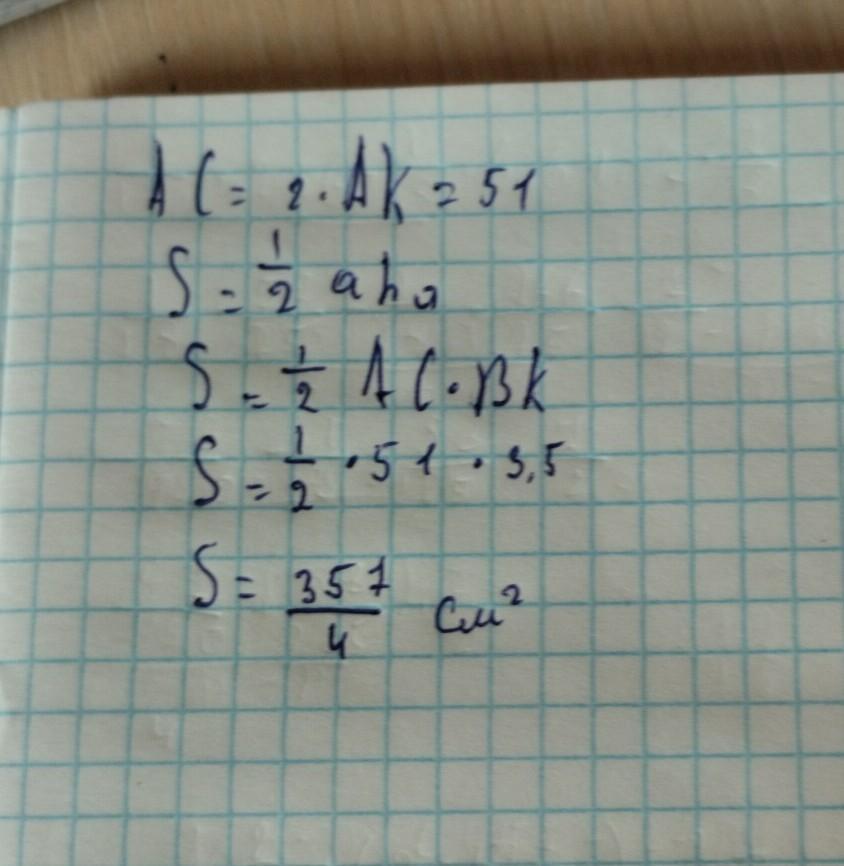 AC = 2 · AK = 51
S = 1/2 ahₐ
S = 1/2 AC · BK
S = 1/2 · 51 · 3,5
S = 357/4 см²